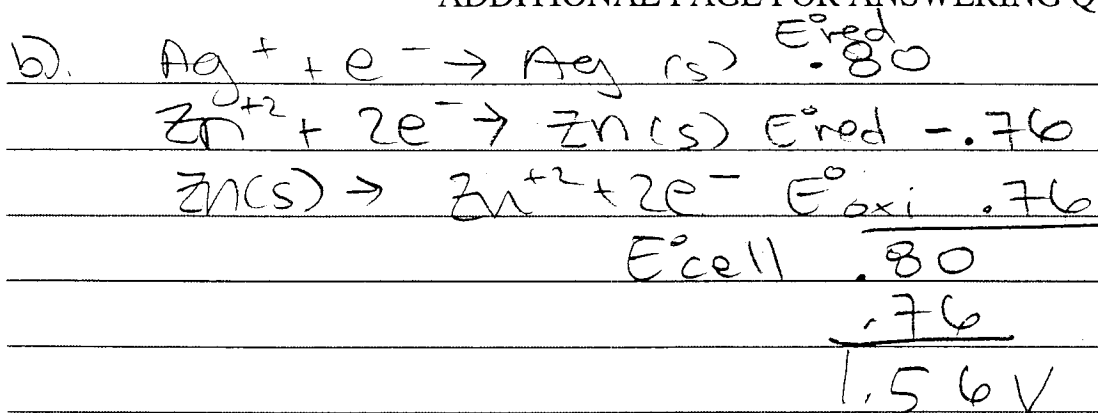 ADDITIONAL PAGE FOR ANSWERING Q
b). Ag⁺ + e⁻ → Ag (s) E°red .80
Zn⁺² + 2e⁻ → Zn(s) E°red -.76
Zn(s) → Zn⁺² + 2e⁻ E°oxi .76
E°cell .80
.76
1.56 V